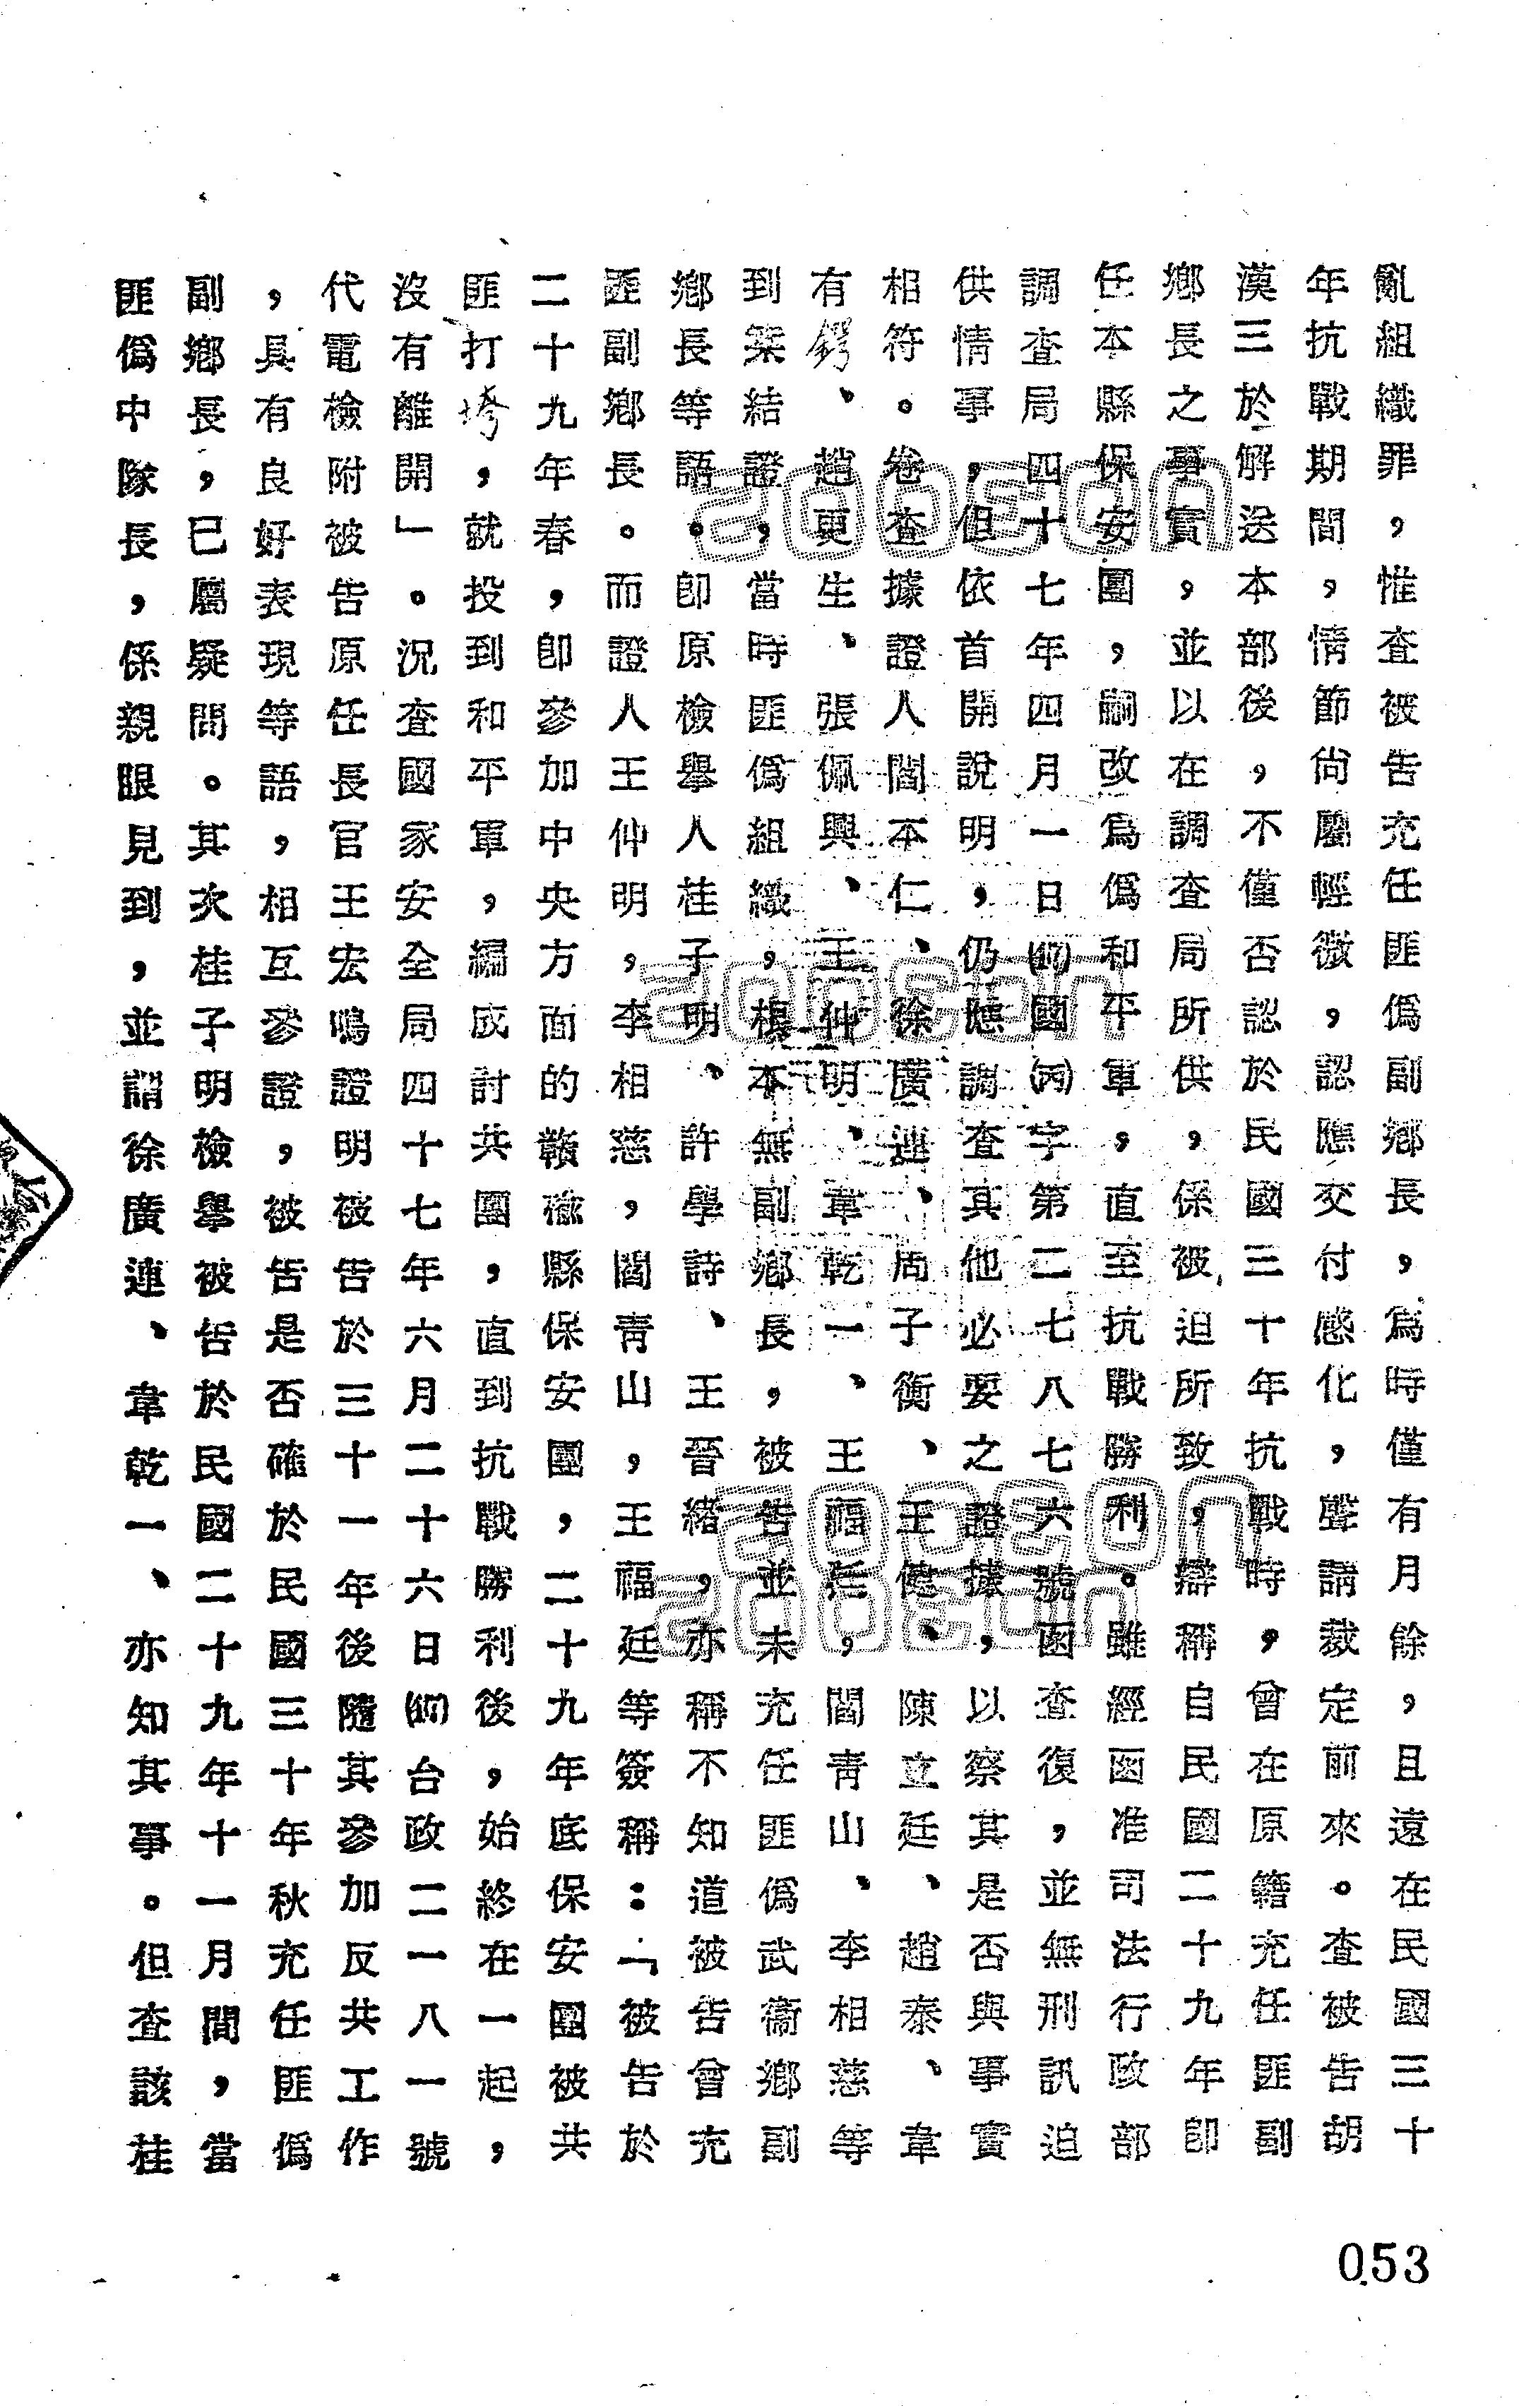 亂組織罪，惟查被告充任匪偽副鄉長，為時僅有月餘，且遠在民國三十
年抗戰期間，情節尚屬輕微，認應交付感化，聲請裁定前來。查被告胡
漢三於解送本部後，不僅否認於民國三十年抗戰時，曾在原籍充任匪副
鄉長之事實，並以在調查局所供，係被迫所致，辯稱自民國二十九年即
任本縣保安團，嗣改為偽和平軍，直至抗戰勝利。雖經函准司法行政部
調查局四十七年四月一日(47)國(丙)字第二七八七六號函查復，並無刑訊迫
供情事，但依首開說明，仍應調查其他必要之證據，以察其是否與事實
相符。卷查據證人閻本仁、徐廣連、周子衡、王健、陳立廷、趙泰、韋
有鍔、趙更生、張佩興、王仲明、韋乾一、王福廷，閻青山、李相慈等
到案結證，當時匪偽組織，根本無副鄉長，被告並未充任匪偽武衞鄉副
鄉長等語。即原檢舉人桂子明、許學詩、王晉緒，亦稱不知道被告曾充
匪副鄉長。而證人王仲明，李相慈，閻青山，王福廷等簽稱：「被告於
二十九年春，即參加中央方面的贛榆縣保安團，二十九年底保安團被共
匪打垮，就投到和平軍，編成討共團，直到抗戰勝利後，始終在一起，
沒有離開」。況查國家安全局四十七年六月二十六日(47)台政二一八一號
代電檢附被告原任長官王宏鳴證明被告於三十一年後隨其參加反共工作
，具有良好表現等語，相互參證，被告是否確於民國三十年秋充任匪偽
副鄉長，已屬疑問。其次桂子明檢舉被告於民國二十九年十一月間，當
匪偽中隊長，係親眼見到，並謂徐廣連、韋乾一、亦知其事。但查該桂
053